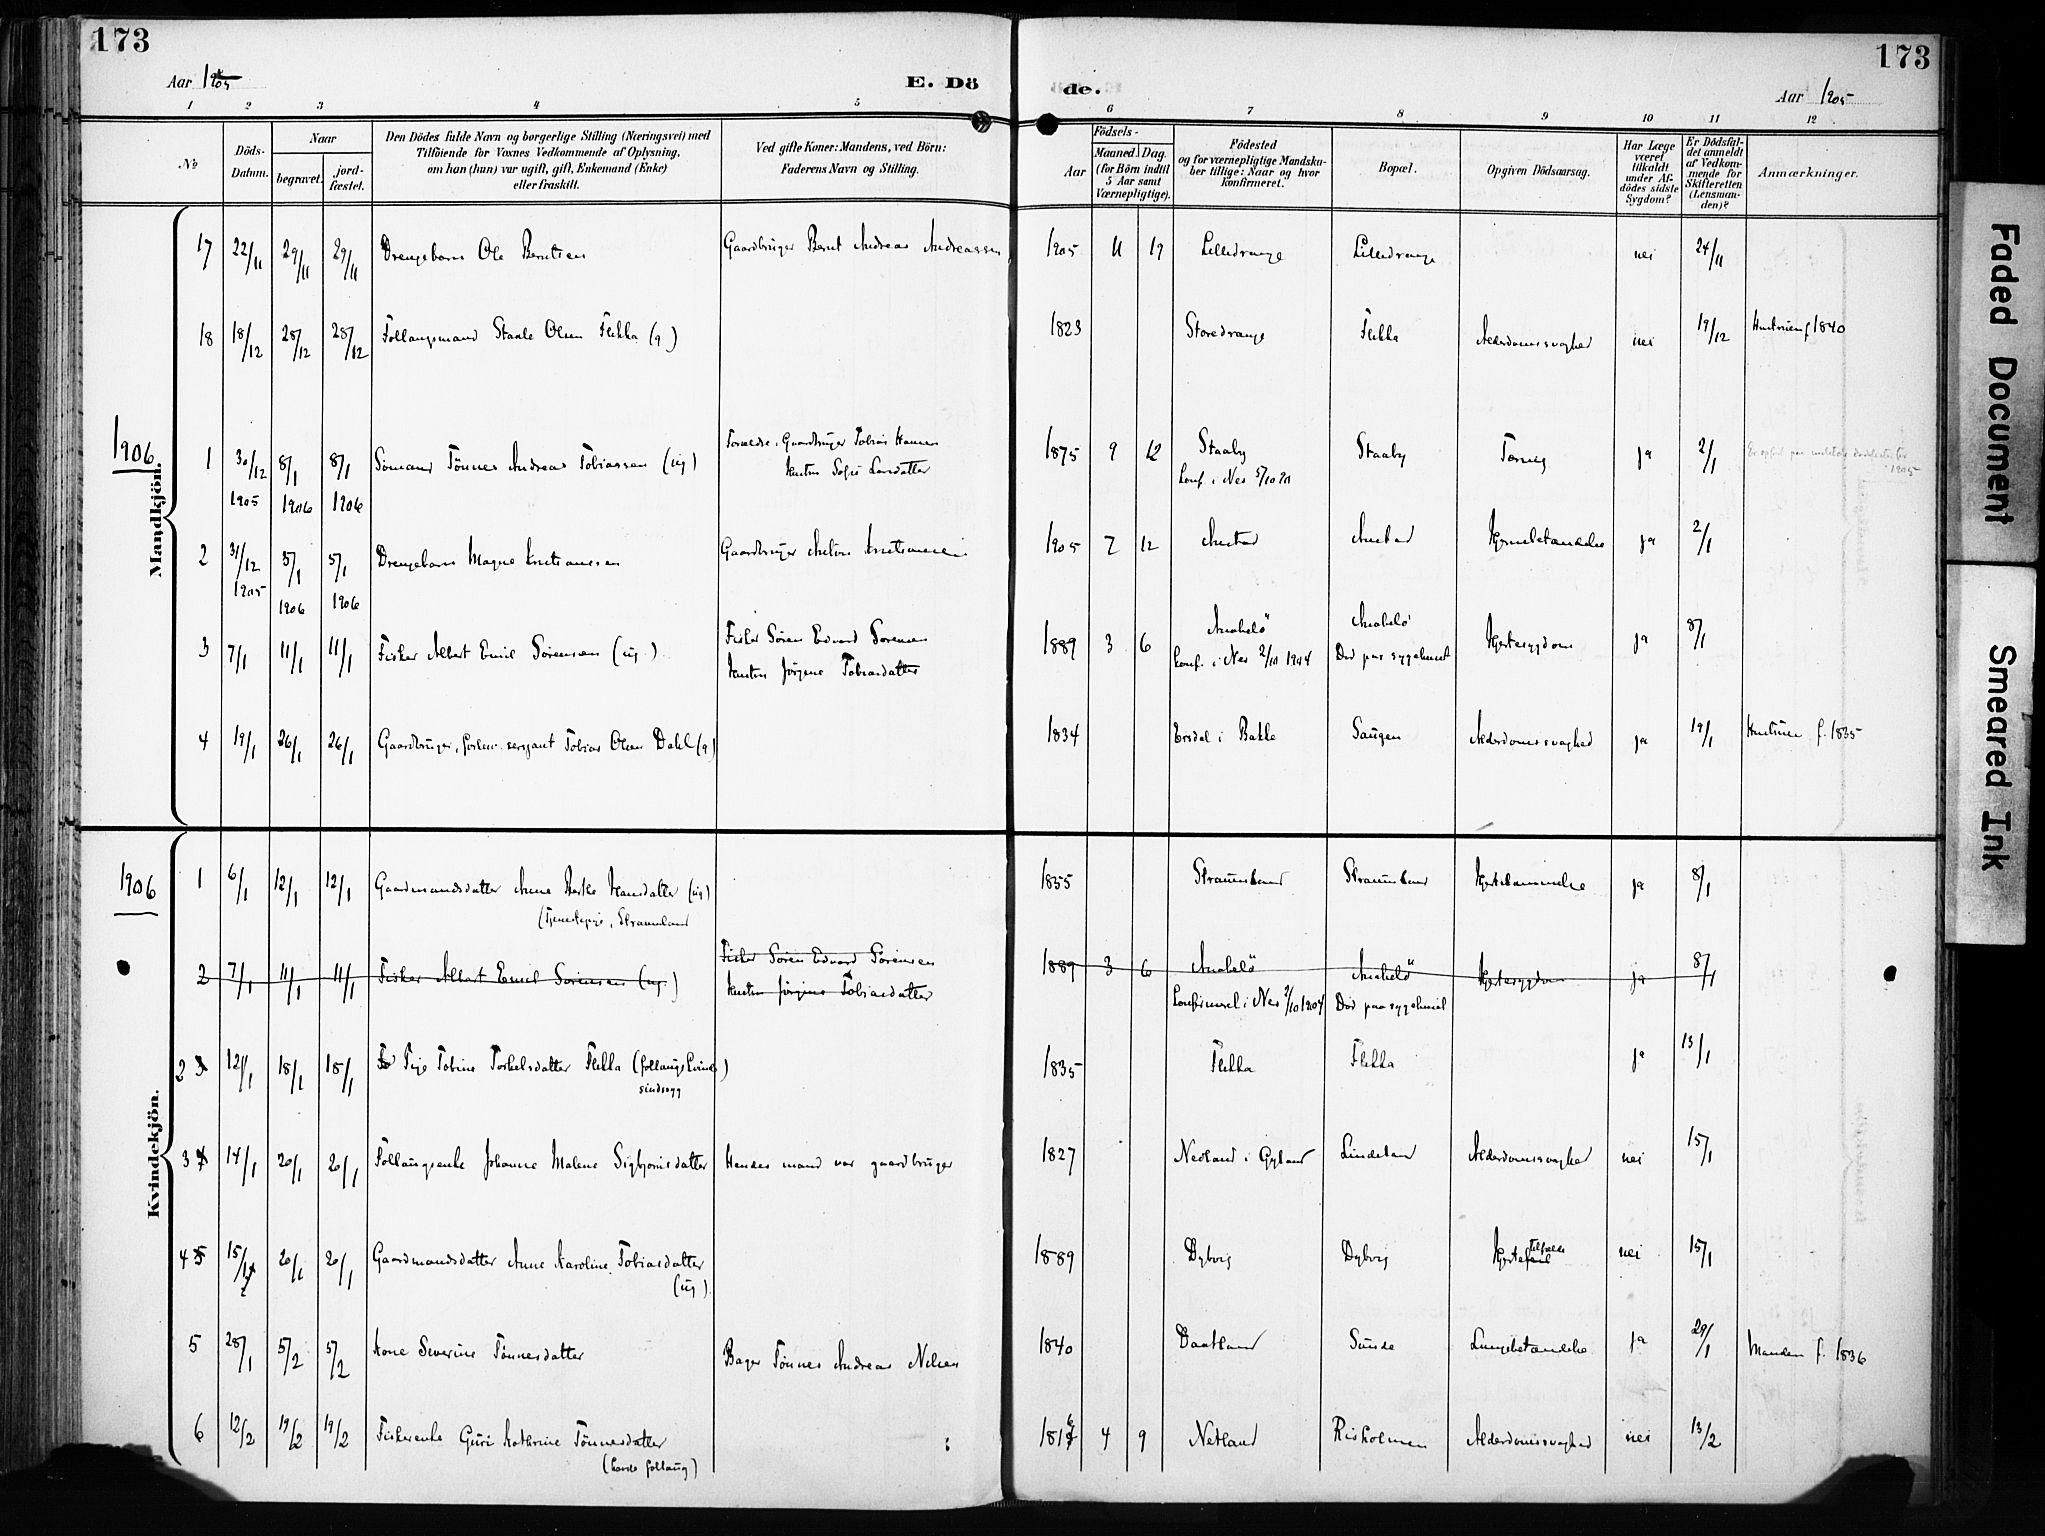 173
173
Aar 1905
E. Döde.
Aar 1905
1 2 3 4 5 6 7 8 9 10 11 12
No
Döds-Datum.
Naar
begravet.
jord-fæstet.
Den Dödes fulde Navn og borgerlige Stilling (Næringsvei) med
Tilföiende for Voxnes Vedkommende af Oplysning,
om han (hun) var ugift, gift, Enkemand (Enke)
eller fraskilt.
Ved gifte Koner: Mandens, ved Börn:
Faderens Navn og Stilling.
Födsels-
Aar
Maaned. Dag.
(for Börn indtil
5 Aar samt
Værnepligtige).
Födested
og for værnepligtige Mandska-
ber tillige: Naar og hvor
konfirmeret.
Bopæl.
Opgiven Dödsaarsag.
Har Læge
været
tilkaldt
under Af-
dödes sidste
Sygdom?
Er Dödsfal-
det anmeldt
af Vedkom-
mende for
Skifteretten
(Lensman-
den)?
Anmærkninger.
Mandkjön.
17 22/11 29/11 29/11 Drengebarn Ole Berntsen Gaardbruger Bernt Andreas Andreassen 1905 11 19 Lilledrange Lilledrange nei 24/11
18 18/12 28/12 28/12 Follaugsmand Staale Olsen Flikka (g) 1823 Storedrange Flikka Alderdomssvaghed nei 19/12 Hustruen f 1840
1906
1 30/12 1905 8/1 1906 8/1 1906 Sömand Tönnes Andreas Tobiassen (ug) Forældre: Gaardbruger Tobias Hansen
Hustru Sofie Larsdatter 1875 9 12 Staaby
Konf. i Nes 5/10 Staaby Tæring ja 2/1
1905
2 31/12 1905 5/1 1906 5/1 1906 Drengebarn Magne Kristiansen Gaardbruger Anton Kristiansen 1905 7 12 Austad Austad Hjernebetændelse ja 2/1
3 7/1 11/1 11/1 Fisker Albert Emil Sörensen (ug.) Fisker Sören Edvard Sörensen
Hustru Jörgine Tobiasdatter 1889 3 6 Anabelö
Konf. i Nes 2/10 1904 Anabelö
Död paa sygehuset Hjertesygdom ja 8/1
4 19/1 26/1 26/1 Gaardbruger, forhv. sergant Tobias Olsen Dahl (g) 1834 Ersdal i Bakke Saugen Alderdomssvaghed ja 19/1 Hustruen f. 1835
1906
Kvindekjön.
1 6/1 12/1 12/1 Gaardmandsdatter Anne Hansdatter (ug)
(Tjenestepige, Straumland 1855 Straumland Straumland ja 8/1
2 7/1 11/1 11/1 Fisker Albert Emil Sörensen (ug.) Fisker Sören Edvard Sörensen
Hustru Jörgine Tobiasdatter 1889 3 6 Anabelö
Konfirmert i Nes 2/10 1904 Anabelö
Död paa sygehuset Hjertesygdom ja 8/1
2 3 12/1 18/1 18/1 Tobine Torkelsdatter Flikka (follaugskvinde)
sindssyg 1835 Flikka Flikka ja 13/1
3 4 14/1 20/1 20/1 Follaugsenke Johanne Malene Sigbjörnsdatter Hendes mand var gaardbruger 1827 Netland i Gyland Lindeland Alderdomssvaghed nei 15/1
4 5 15/1 20/1 20/1 Gaardmandsdatter Anne Karoline Tobiasdatter
(ug). 1889 Dybvig Dybvig Hjertefeil tilfælde nei 15/1
5 28/1 5/2 5/2 Kone Severine Tönnesdatter Bager Tönnes Andreas Nilsen 1840 Daatland Sunde Lungebetændelse ja 29/1 Manden f. 1836
6 12/2 19/2 19/2 Fiskerenke Guri Kathrine Tönnesdatter
(havde follaug) 1816 4 9 Netland Risholmen Alderdomssvaghed nei 13/2
Faded Document
Smeared Ink